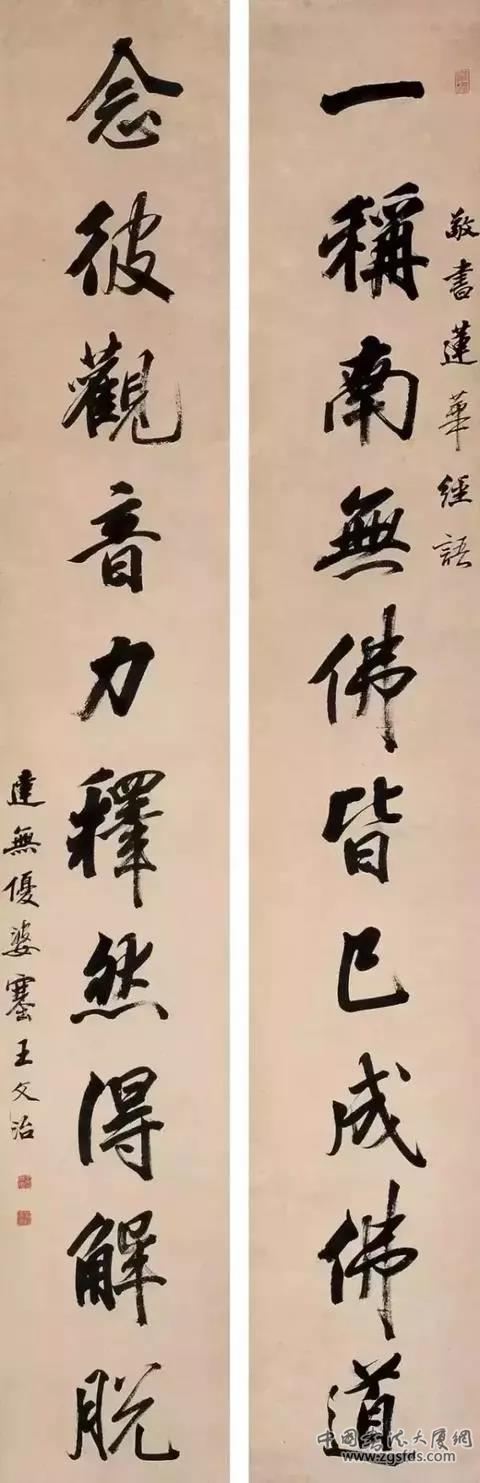 敬書蓮華經語
一稱南無佛皆已成佛道
念彼觀音力釋然得解脫
達無優婆塞王文治
中國書法大廈網
www.zgsfds.com